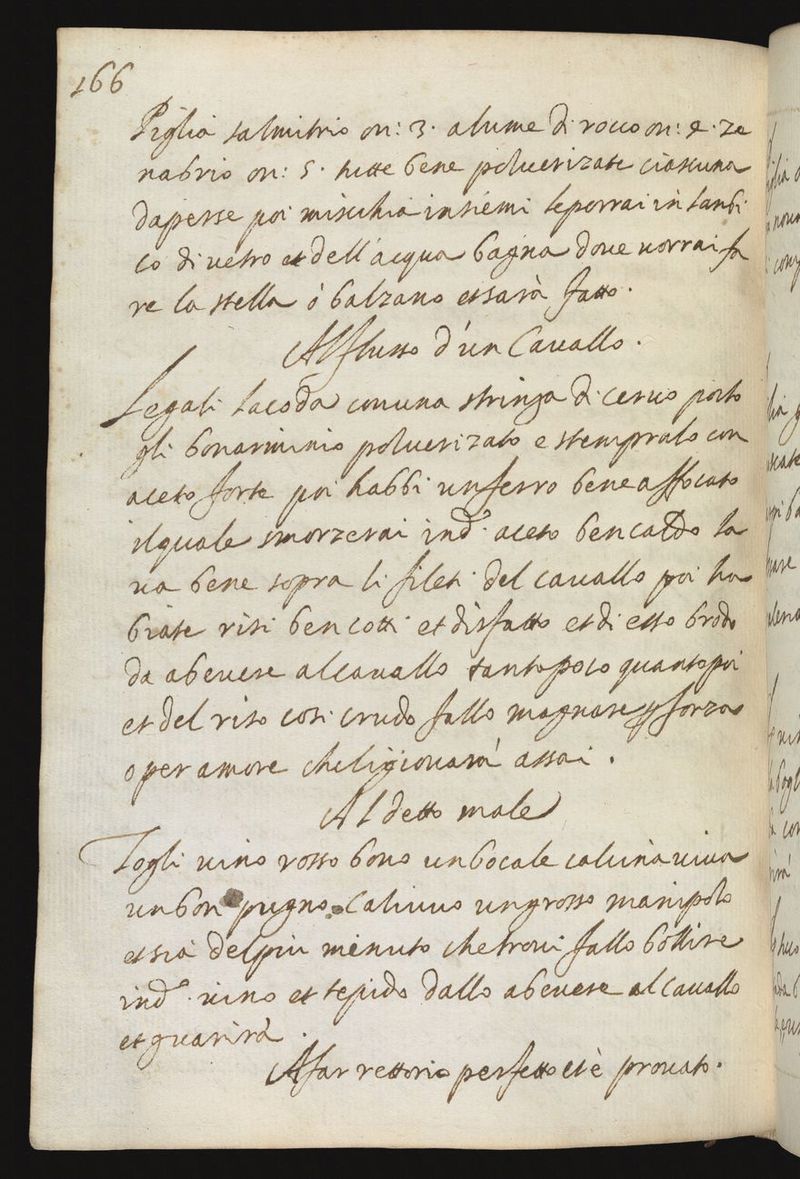 166
Piglia salmitrio on: 3. alume di rocco on: 2. ze
nabrio on: 5. tutte bene poluerizate ciascuna
dapersè poi mischia insiemi le porrai in lanbi
co di vetro et dell'acqua bagna doue uorrai fa
re la stella ò balzano et sarà fatto.
Al flusso d'un Cauallo.
Legali la coda con una stringa di ceruo porto
gli bonarminio poluerizato e stempralo con
aceto forte poi habbi un ferro bene affocato
il quale smorzerai in do. aceto ben caldo la
ua bene sopra li fileti del cauallo poi ha
biate risi ben cotti et disfatto et di esso brodo
da abeuere al cauallo tanto poco quanto poi
et del riso così crudo fallo magnare p forza
o per amore che li giouarà assai.
Al detto male
Togli uino rosso bono un bocale calcina uiua
un bon pugno un grosso manipolo
et sia del piu menuto che troui fallo bollire
in do. uino et tepido dallo abeuere al cauallo
et guarirà.
A far rettorio perfetto et è prouato.